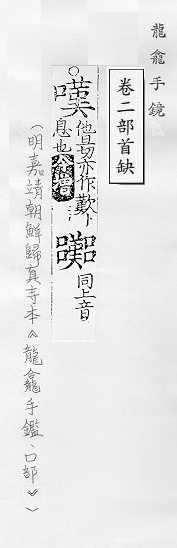 龍龕手鏡
卷二部首缺
○嘆他旦切亦作歎
息也今增
同上音
（明嘉靖朝鮮歸真寺本《龍龕手鑑·口部》）